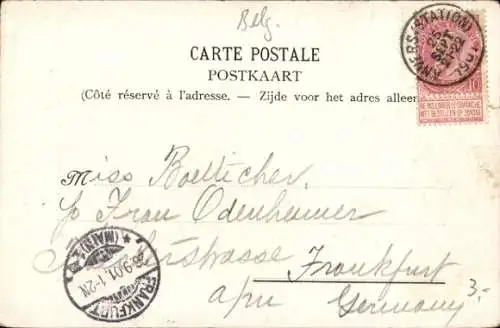 Belg.
CARTE POSTALE
POSTKAART
(Côté réservé à l'adresse. — Zijde voor het adres alleen
ANVERS (STATION)
25
SEPT
10
NE PAS LIVRER LE DIMANCHE
NIET BESTELLEN OP ZONDAG
Miss Boetticher
c/o Frau Odenheimer
strasse
Frankfurt
a/m
Germany
3.-
FRANKFURT
(MAIN)
9.01. 1-2N.